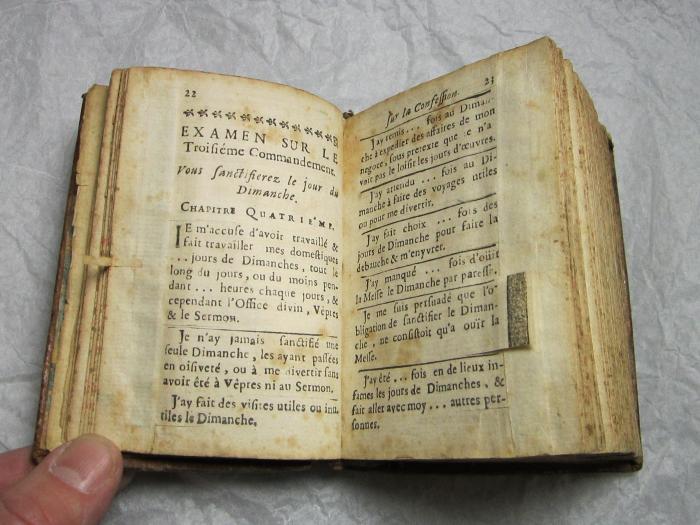 22
EXAMEN SUR LE
Troisiéme Commandement.
Vous sanctifierez le jour du
Dimanche.
CHAPITRE QUATRIE'ME.
JE m'accuse d'avoir travaillé &
fait travailler mes domestiques
... jours de Dimanches, tout le
long du jours, ou du moins pen-
dant ... heures chaque jours, &
cependant l'Office divin, Vépres
& le Sermon.
Je n'ay jamais sanctifié une
seule Dimanche, les ayant passées
en oisiveté, ou à me divertir sans
avoir été à Vêpres ni au Sermon.
J'ay fait des visites utiles ou inu-
tiles le Dimanche.
23
sur la Confession.
J'ay remis ... fois au Diman-
che à expedier des affaires de mon
negoce, sous pretexte que je n'a
vois pas le loisir les jours d'œuvres.
J'ay attendu ... fois au Di-
manche à faire des voyages utiles
ou pour me divertir.
J'ay fait choix ... fois des
jours de Dimanche pour faire la
debauche & m'enyvrer.
J'ay manqué ... fois d'ouïr
la Messe le Dimanche par paresse.
Je me suis persuadé que l'o-
bligation de sanctifier le Diman-
che, ne consistoit qu'a ouïr la
Messe.
J'ay été ... fois en de lieux in-
fames les jours de Dimanches, &
fait aller avec moy ... autres per-
sonnes.